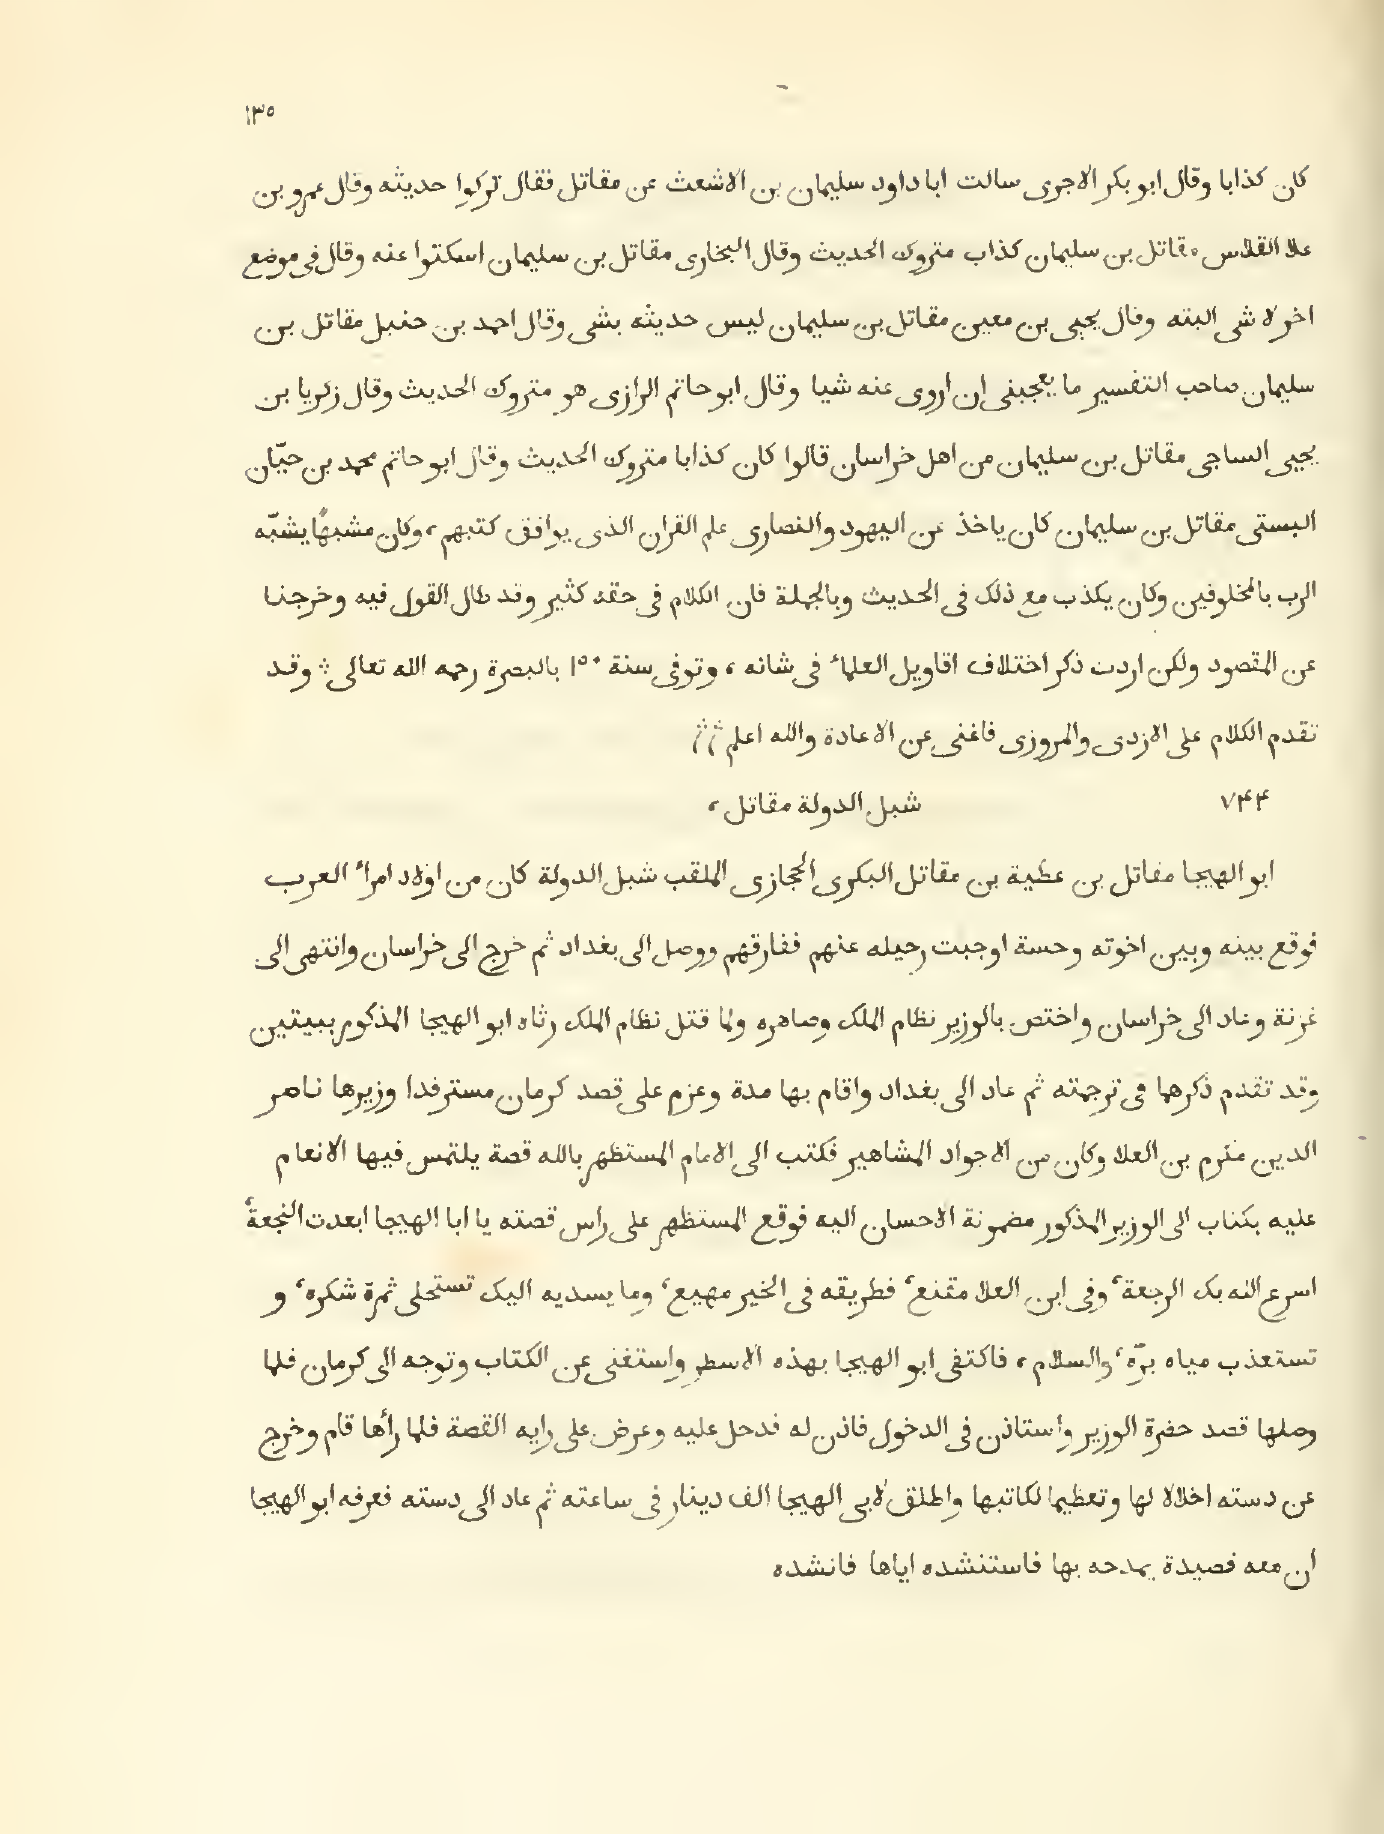 ١٣٥
كان كذابا وقال ابو بكر الاجرى سالت ابا داود سليمان بن الاشعث عن مقاتل فقال تركوا حديثه وقال عمرو بن
علا القلاس مقاتل بن سليمان كذاب متروك الحديث وقال البخارى مقاتل بن سليمان اسكتوا عنه وقال فى موضع
اخر لا شى البته وقال يحيى بن معين مقاتل بن سليمان ليس حديثه بشى وقال احمد بن حنبل مقاتل بن
سليمان صاحب التفسير ما يعجبنى ان اروى عنه شيا وقال ابو حاتم الرازى هو متروك الحديث وقال زكريا بن
يحيى الساجى مقاتل بن سليمان من اهل خراسان قالوا كان كذابا متروك الحديث وقال ابو حاتم محمد بن حيّان
البستى مقاتل بن سليمان كان ياخذ عن اليهود والنصارى علم القران الذى يوافق كتبهم، وكان مشبهًا يشبّه
الرب بالمخلوقين وكان يكذب مع ذلك فى الحديث وبالجملة فان الكلام فى حقه كثير وقد طال القول فيه وخرجنا
عن المقصود ولكن اردت ذكر اختلاف اقاويل العلماء فى شانه، وتوفى سنة ١٥٠ بالبصرة رحمه الله تعالى ؞ وقد
تقدم الكلام على الازدى والمروزى فاغنى عن الاعادة والله اعلم
٧۴۴ شبل الدولة مقاتل،
ابو الهيجا مقاتل بن عطية بن مقاتل البكرى الحجازى الملقب شبل الدولة كان من اولاد امراء العرب
فوقع بينه وبين اخوته وحسة اوجبت رحيله عنهم ففارقهم ووصل الى بغداد ثم خرج الى خراسان وانتهى الى
غزنة وعاد الى خراسان واختص بالوزير نظام الملك وصاهره ولما قتل نظام الملك رثاه ابو الهيجا المذكور ببيتين
وقد تقدم ذكرهما فى ترجمته ثم عاد الى بغداد واقام بها مدة وعزم على قصد كرمان مسترفدا وزيرها ناصر
الدين مكرم بن العلا وكان من الاجواد المشاهير فكتب الى الامام المستظهر بالله قصة يلتمس فيها الانعام
عليه بكتاب الى الوزير المذكور مضمونة الاحسان اليه فوقع المستظهر على راس قصته يا ابا الهيجا ابعدت النجعة،
اسرع الله بك الرجعة، وفى ابن العلا مقنع، فطريقه فى الخير مهيع، وما يسديه اليك تستحلى ثمرة شكره، و
تستعذب مياه برّه، والسلام، فاكتفى ابو الهيجا بهذه الاسطر واستغنى عن الكتاب وتوجه الى كرمان فلما
وصلها قصد حضرة الوزير واستاذن فى الدخول فاذن له فدخل عليه وعرض على رايه القصة فلما رأها قام وخرج
عن دسته اجلالا لها وتعظيما لكاتبها واطلق لابى الهيجا الف دينار فى ساعته ثم عاد الى دسته فعرفه ابو الهيجا
ان معه قصيدة يمدحه بها فاستنشده اياها فانشده